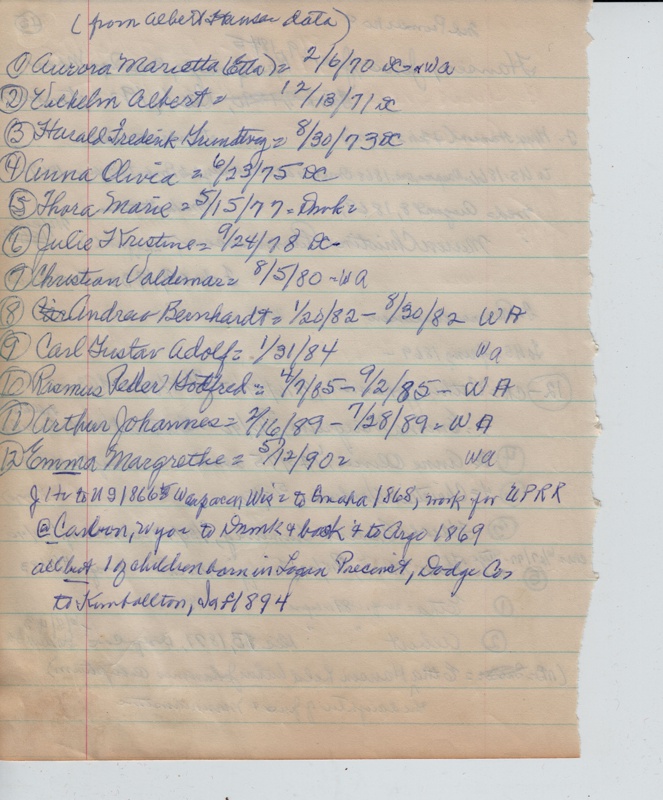 (from Albert Hansen data)
① Aurora Marietta (Etta) = 2/6/70 DC = WA
② Vilhelm Albert = 12/13/71 DC
③ Harald Frederik Grundtvig = 8/30/73 DC
④ Anna Olivia = 6/23/75 DC
⑤ Thora Marie = 5/15/77 = Dmk =
⑥ Julie Kristine = 9/24/78 DC -
⑦ Christian Valdemar = 8/5/80 - WA
⑧ Andrew Bernhardt = 1/20/82 - 8/30/82 WA
⑨ Carl Gustav Adolf = 1/31/84 Wa
⑩ Rasmus Peder Godtfred = 4/7/85 - 9/2/85 - WA
⑪ Arthur Johannes = 2/16/89 - 7/28/89 = WA
⑫ Emma Margrethe = 5/12/90 = Wa
J H to US 1866 Waupaca, Wis = to Omaha 1868, work for UPRR
@ Carbon, Wyo = to Dnmk & back & to Argo 1869
all but 1 of children born in Logan Precinct, Dodge Co
to Kimballton, Ia 1894